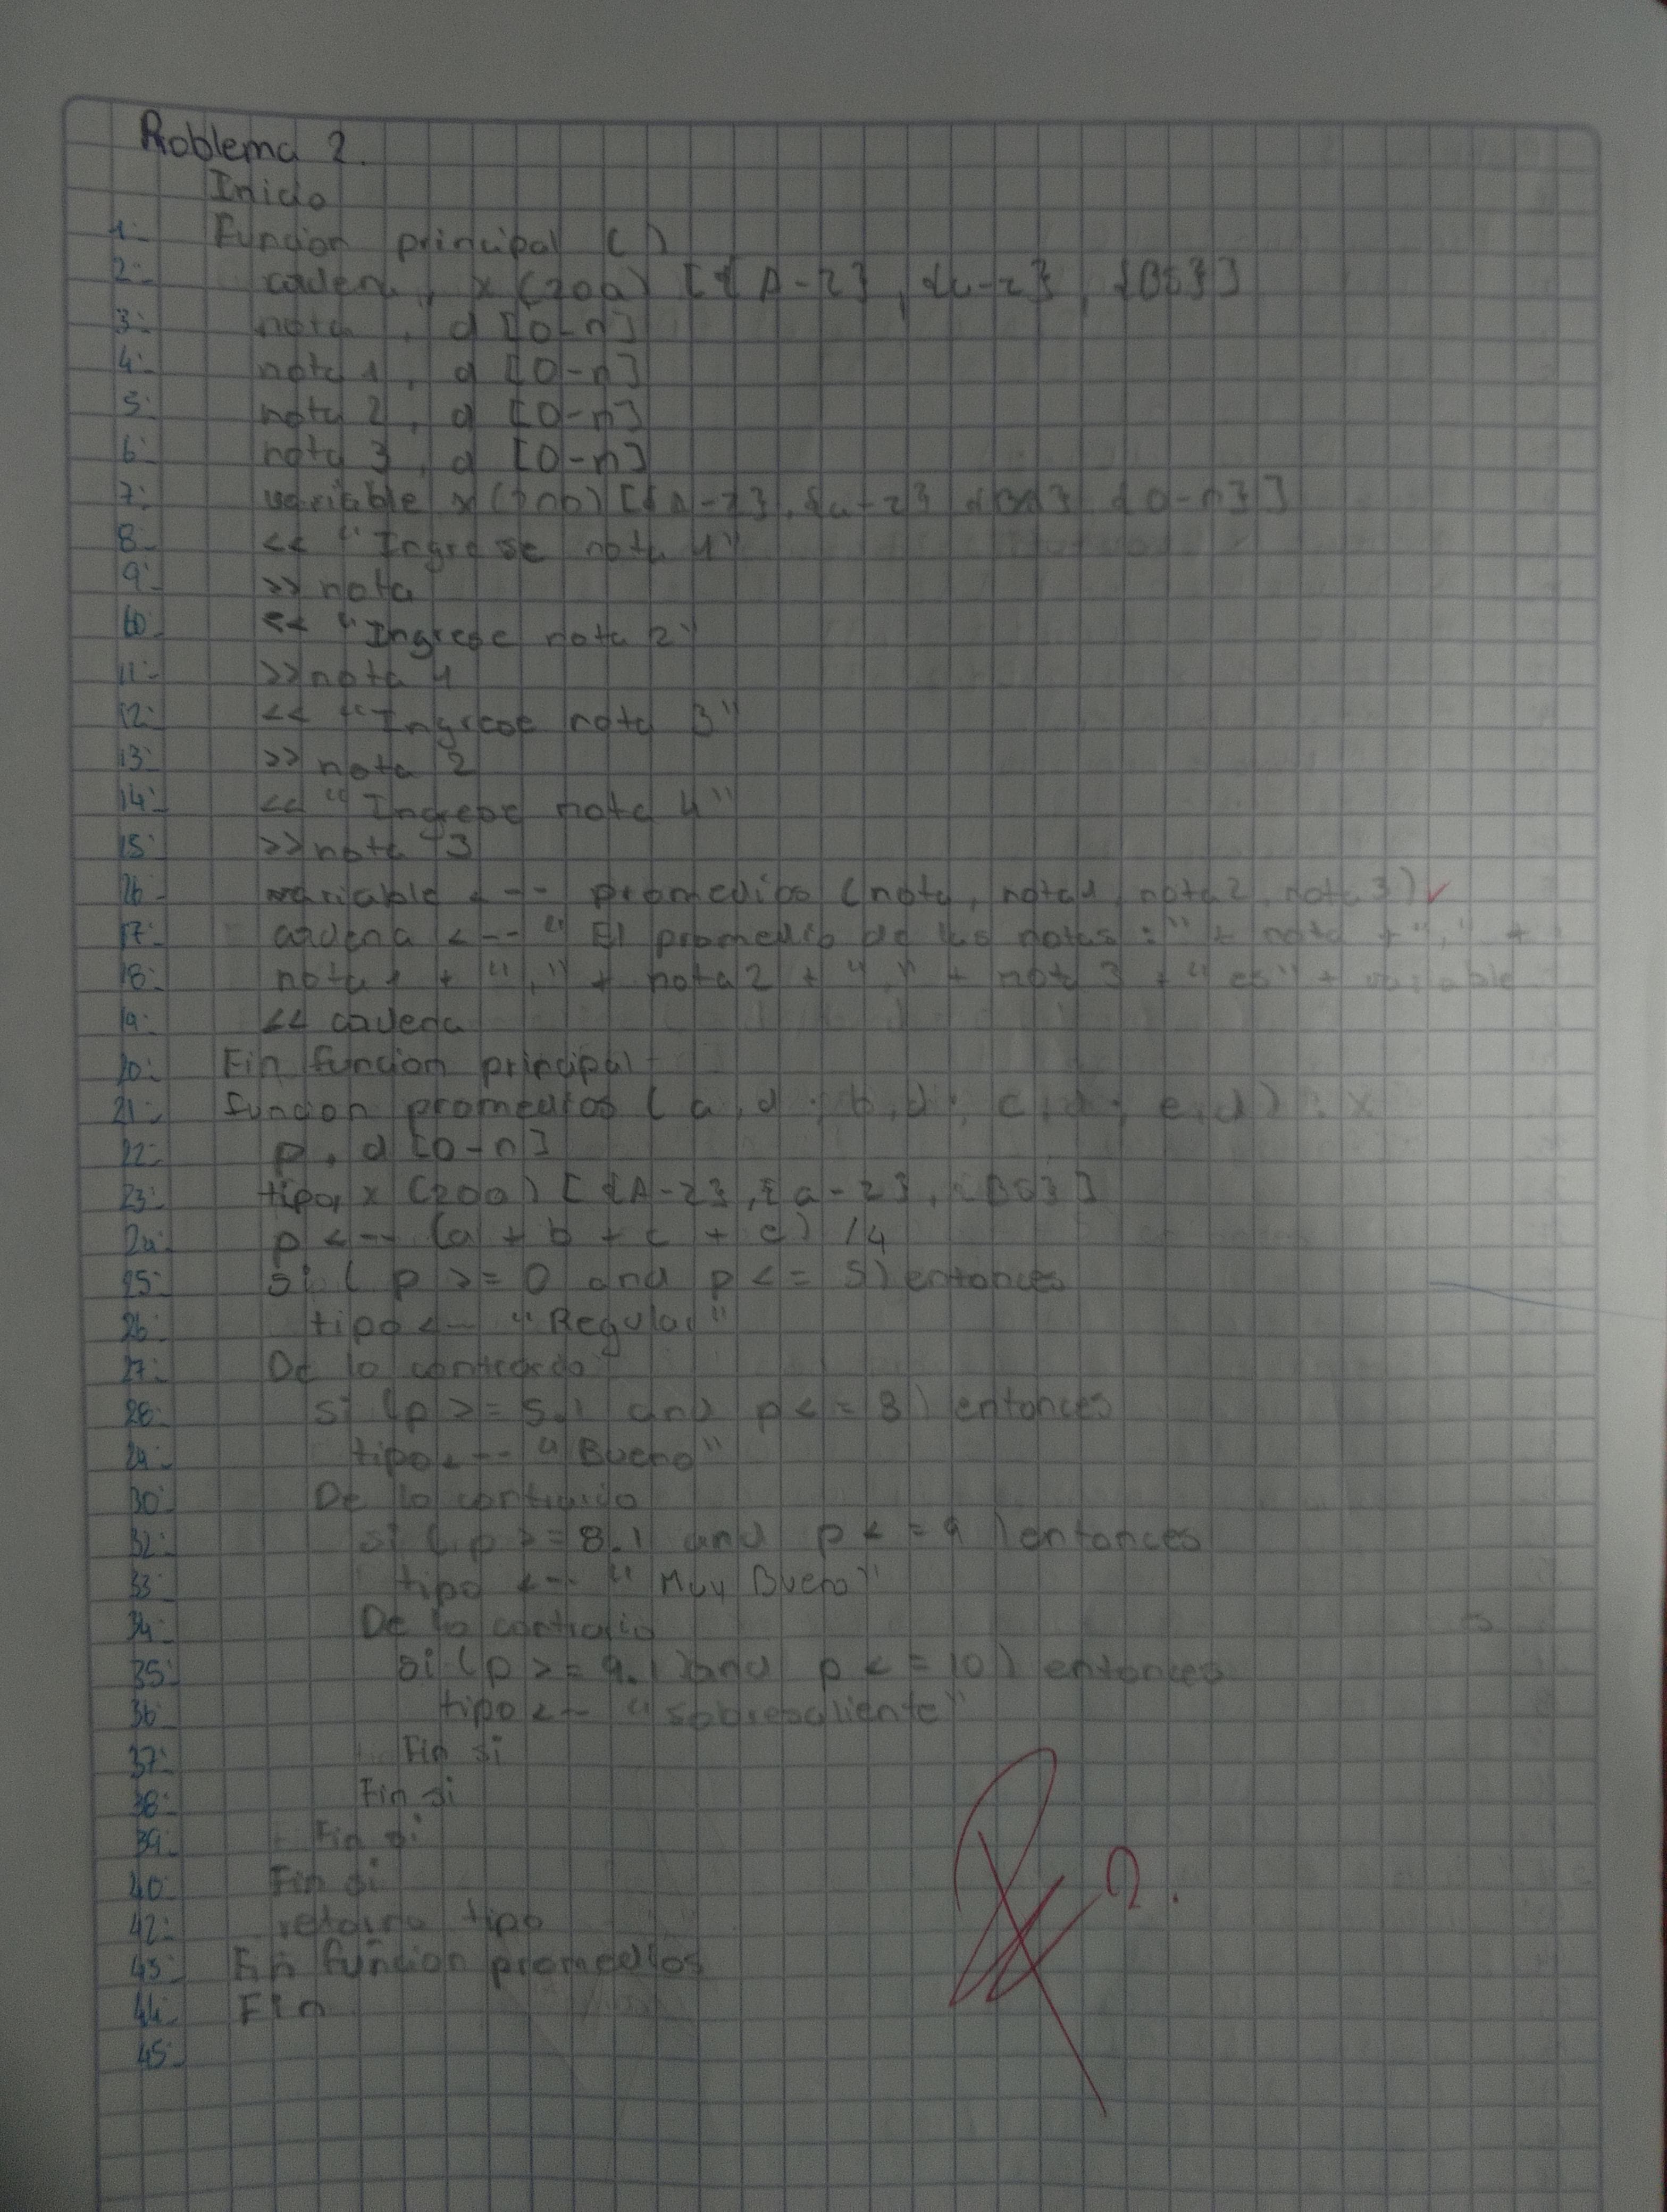 Problema 2.
Inicio
1: Funcion principal ( )
2: cadena, x (200) [{A-Z}, {a-z}, {BS}]
3: nota, d [0-n]
4: nota 1, d [0-n]
5: nota 2, d [0-n]
6: nota 3, d [0-n]
7: variable x (200) [{A-Z}, {a-z} {BS} {0-n}]
8: << "Ingrese nota 1"
9: >> nota
10: << "Ingrese nota 2"
11: >> nota 1
12: << "Ingrese nota 3"
13: >> nota 2
14: << "Ingrese nota 4"
15: >> nota 3
26: variable <-- promedios (nota, nota1, nota2, nota3) ✓
17: cadena <-- "El promedio de las notas:" + nota + "," +
18: nota1 + "," + nota2 + "," + nota 3 + "es" + variable
19: << cadena
20: Fin funcion principal
21: funcion promedios (a,d; b,d; c,d; e,d) : x
22: p, d [0-n]
23: tipo, x (200) [{A-Z}, {a-z}, {BS}]
24: p <-- (a + b + c + e) /4
25: si ( p >= 0 and p <= 5) entonces
26: tipo <-- "Regular"
27: De lo contrario
28: si (p >= 5.1 and p <= 8) entonces
29: tipo <-- "Bueno"
30: De lo contrario
32: si ( p >= 8.1 and p <= 9 ) entonces
33: tipo <-- "Muy Bueno"
34: De lo contrario
35: si (p >= 9.1 and p <= 10) entonces
36: tipo <-- "Sobresaliente"
37: Fin si
38: Fin si
39: Fin si
40: Fin si
42: retorno tipo
43: Fin función promedios
44: Fin
45: